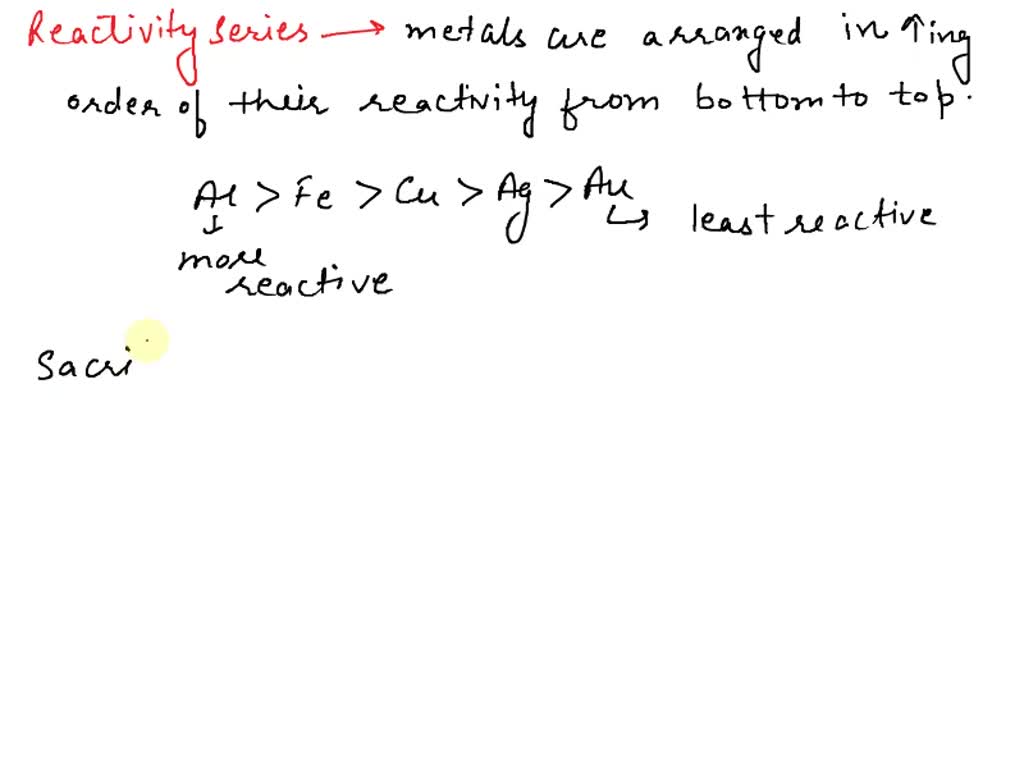 Reactivity series → metals are arranged in ↑ing
order of their reactivity from bottom to top.
Al > Fe > Cu > Ag > Au
↳ least reactive
↓
more
reactive
Sacri